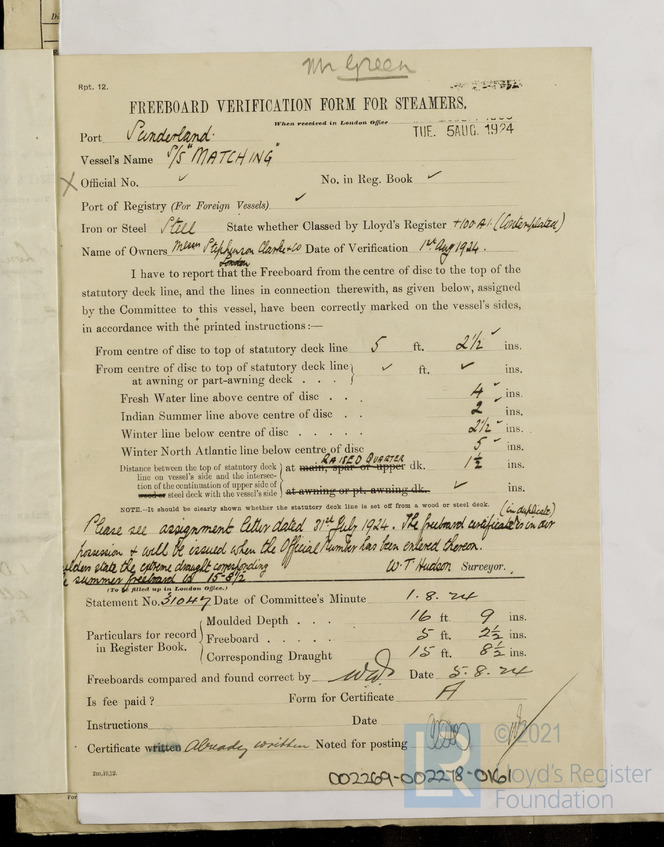 Mr Green
Rpt. 12.
FREEBOARD VERIFICATION FORM FOR STEAMERS.
When received in London Office
TUE. 5 AUG. 1924
Port Sunderland.
Vessel's Name S/S "MATCHING"
X Official No. ✓ No. in Reg. Book ✓
Port of Registry (For Foreign Vessels) ✓
Iron or Steel Steel State whether Classed by Lloyd's Register +100A1. (Contemplated)
Name of Owners Messrs Stephenson Clarke & Co Date of Verification 1st Aug 1924.
London
I have to report that the Freeboard from the centre of disc to the top of the
statutory deck line, and the lines in connection therewith, as given below, assigned
by the Committee to this vessel, have been correctly marked on the vessel's sides,
in accordance with the printed instructions:—
From centre of disc to top of statutory deck line 5 ft. 2½ ins.
From centre of disc to top of statutory deck line
at awning or part-awning deck . . . ✓ ft. ✓ ins.
Fresh Water line above centre of disc . . . 4 ins.
Indian Summer line above centre of disc . . 2 ins.
Winter line below centre of disc . . . . . 2½ ins.
Winter North Atlantic line below centre of disc 5 ins.
RAISED QUARTER
Distance between the top of statutory deck
line on vessel's side and the intersec-
tion of the continuation of upper side of
wood or steel deck with the vessel's side
at main, spar or upper dk. 1½ ins.
at awning or pt. awning dk. ✓ ins.
NOTE.—It should be clearly shewn whether the statutory deck line is set off from a wood or steel deck.
(in duplicate)
Please see assignment letter dated 31st July 1924. The freeboard certificate is in our
possession & will be issued when the Official Number has been entered thereon.
state the extreme draught corresponding
summer freeboard is 15-8½
W. T. Hudson Surveyor.
(To be filled up in London Office.)
Statement No. 31047 Date of Committee's Minute 1.8.24
Particulars for record
in Register Book.
Moulded Depth . . . 16 ft 9 ins.
Freeboard . . . . . 5 ft. 2½ ins.
Corresponding Draught 15 ft. 8½ ins.
Freeboards compared and found correct by Date 5.8.24
Is fee paid? Form for Certificate A
Instructions Date
Certificate written Already written Noted for posting
2m,10,12.
002269-002278-0161
©2021
LR
Lloyd's Register
Foundation